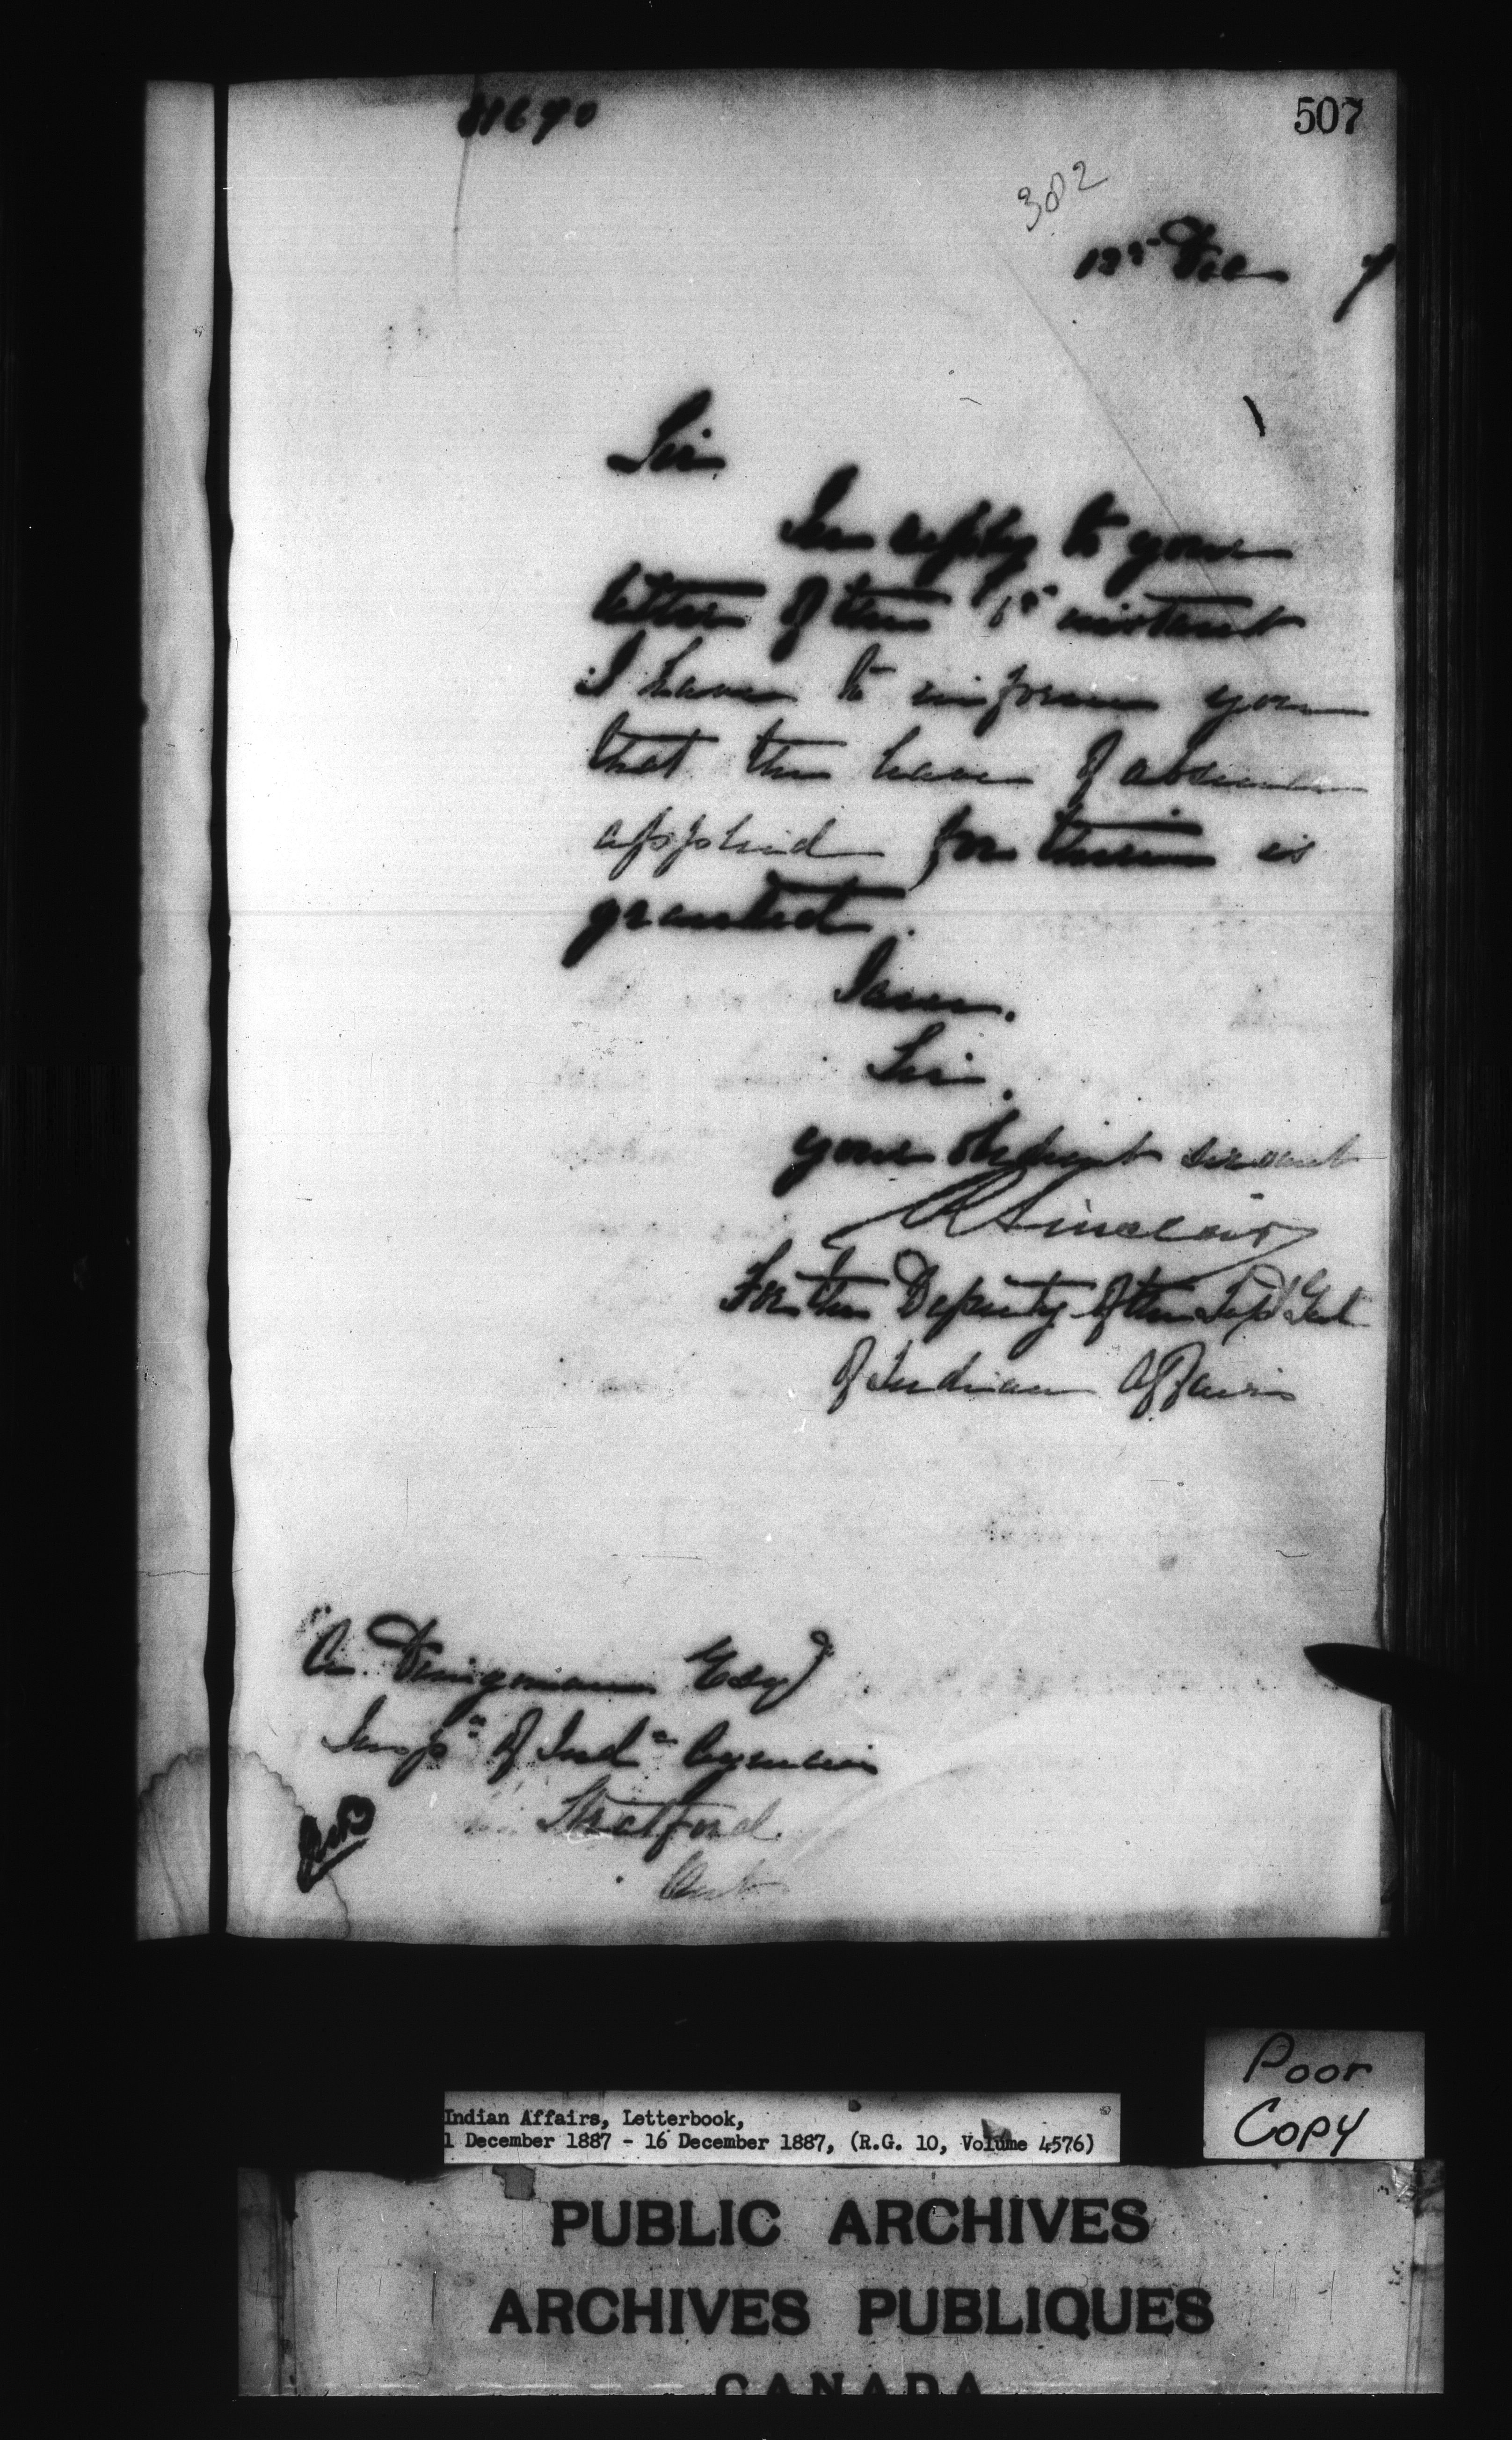 81690
507
382
12th Dec 7
Sir
In reply to your
letter of the 6th instant
I have to inform you
that the leave of absence
applied for therein is
granted.
I am.
Sir.
your obedient servant
R Sinclair
For the Deputy of the Supt Genl
of Indian Affairs
A. Dingman Esqr
Insp. of Ind. Agencies
Stratford.
Ont
Poor
Copy
Indian Affairs, Letterbook,
1 December 1887 - 16 December 1887, (R.G. 10, Volume 4576)
PUBLIC ARCHIVES
ARCHIVES PUBLIQUES
CANADA